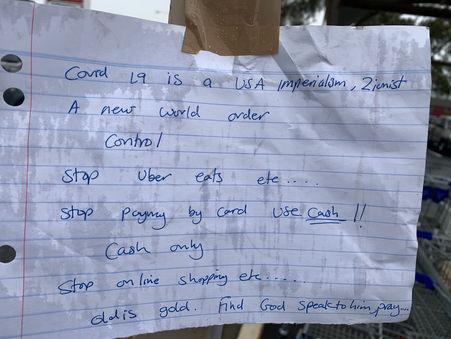 Covid 19 is a USA imperialism, Zionist
A new world order
Control
Stop Uber eats etc.....
Stop paying by card use Cash !!
Cash only
Stop online shopping etc.....
old is gold. Find God speak to him, pray...